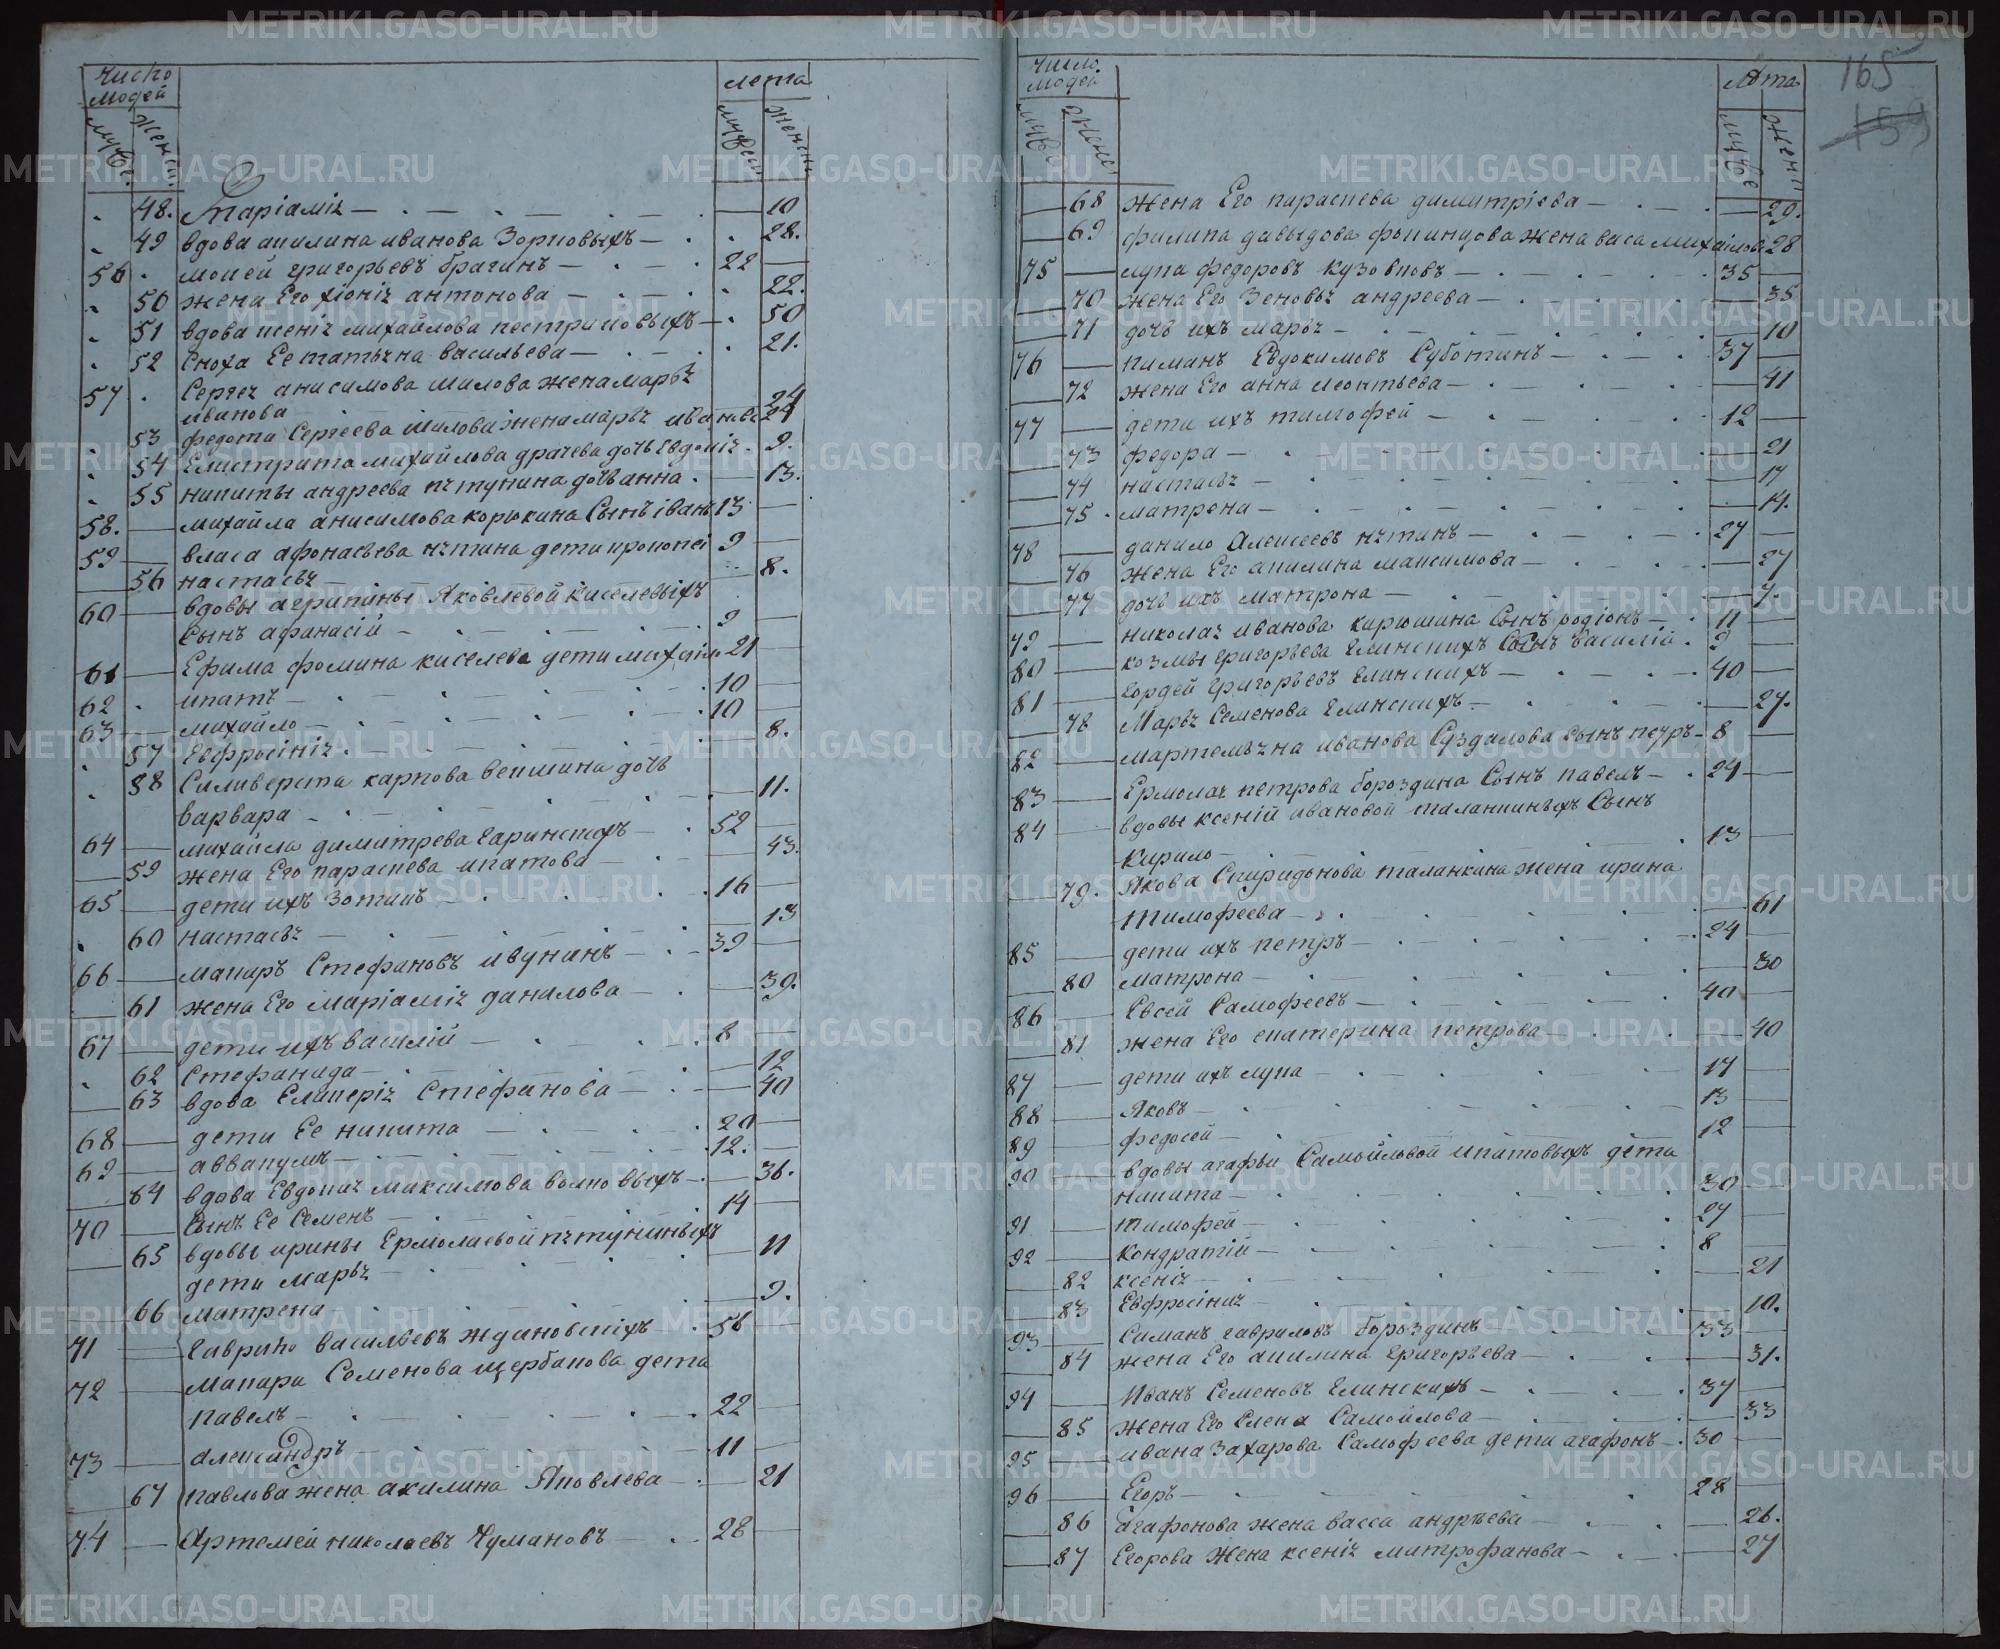 Число людей
мужес.
женск.
лета
мужеск
женск
48. Маріамія — 10
49 вдова акилина иванова Зорковыхъ — 28.
56 мокей григорьевъ брагинъ — 22
50 жена Его хіонія антонова — 22.
51 вдова ксенія михайлова пестриковыхъ — 50
52 Сноха Ее татьяна васильева — 21.
57 Сергея анисимова шилова жена марья
иванова — 24
53 федота Сергеева шилова жена марья иванова 24
54 Елистрата михайлова драчева дочь Евдокія 9.
55 никиты андреева пятунина дочь анна 13.
58. михайла анисимова корюкина Сынъ іванъ 13
59 власа афонасьева нятина дети прокопеі 9
56 настасья — 8.
60 вдовы агрипины Яковлевой киселевыхъ
Сынъ афанасій — 9
61 Ефима фомина киселева дети михайло 21
62 ипатъ — 10
63 михайло — 10
57 Евфросінія — 8.
58 Силиверста карпова векшина дочь
варвара — 11.
64 михайла димитрева гаринскихъ — 52
59 жена Его параскева ипатова — 43.
65 дети ихъ Зотикъ — 16
60 настасья — 13
66 макаръ Стефановъ ивунинъ — 39
61 жена Его маріамія данилова — 39.
67 дети ихъ василій — 8
62 Стефанида — 12
63 вдова Гликерія Стефанова — 40
68 дети Ее никита — 20
69 аввакумъ — 12.
64 вдова Евдокия максимова волковыхъ — 36.
70 Сынъ Ее Семенъ — 14
65 вдовы ирины Ермолаевой пятуниныхъ
дети марья — 11
66 матрена — 9.
71 Гаврило васильевъ ждановскіхъ — 56
72 макара Семенова щербакова дети
павелъ — 22
73 александръ — 11
67 павлова жена акилина Яковлева — 21
74 Артемей николаевъ Чумановъ — 28
165
159
Число людей
мужес
женск
лѣта
мужес
женск
68 жена Его параскева димитріева — 29.
69 филипа давыдова фокинцова жена васа михайлова 28
75 лупа федоровъ кузовковъ — 35
70 жена Его Зеновья андреева — 35
71 дочь ихъ марья — 10
76 киманъ Евдокимовъ Суботинъ — 37
72 жена Его анна леонтьева — 41
77 дети ихъ тимофей — 12
73 федора — 21
74 настасья — 17
75 матрена — 14.
78 данило Алексеевъ нятинъ — 27
76 жена Его акилина максимова — 27
77 дочь ихъ матрона — 7.
79 николая иванова кирюшина Сынъ родіонъ — 11
80 козмы григорьева глинскихъ Сынъ василій. 9
81 Гордей григорьевъ глинскихъ — 40
78 Марья Семенова глинскихъ — 27.
82 мартемьяна иванова Суздалова сынъ петръ — 8
83 Ермолая петрова бороздина Сынъ павелъ — 24
84 вдовы ксеній ивановой таланкиныхъ Сынъ
Кирило — 13
79. Якова Спиридонова таланкина жена ирина
тимофеева — 61
85 дети ихъ петръ — 24
80 матрона — 30
86 Евсей Самофеевъ — 40
81 жена Его екатерина петрова — 40
87 дети ихъ лупа — 17
88 Яковъ — 13
89 федосей — 12
90 вдовы агафьи Самойловой ипатовыхъ дети
никита — 30
91 тимофей — 27
92 Кондратій — 8
82 ксенія — 21
83 Евфросіния — 10.
93 Симанъ гавриловъ бороздинъ — 33
84 жена Его акилина григорьева — 31.
94 Иванъ Семеновъ глинскихъ — 37
85 жена Его Елена Самойлова — 33
95 ивана Захарова Самофеева дети агафонъ — 30
96 Егоръ — 28
86 агафонова жена васса андрѣева — 26.
87 Егорова жена ксенія митрофанова — 27